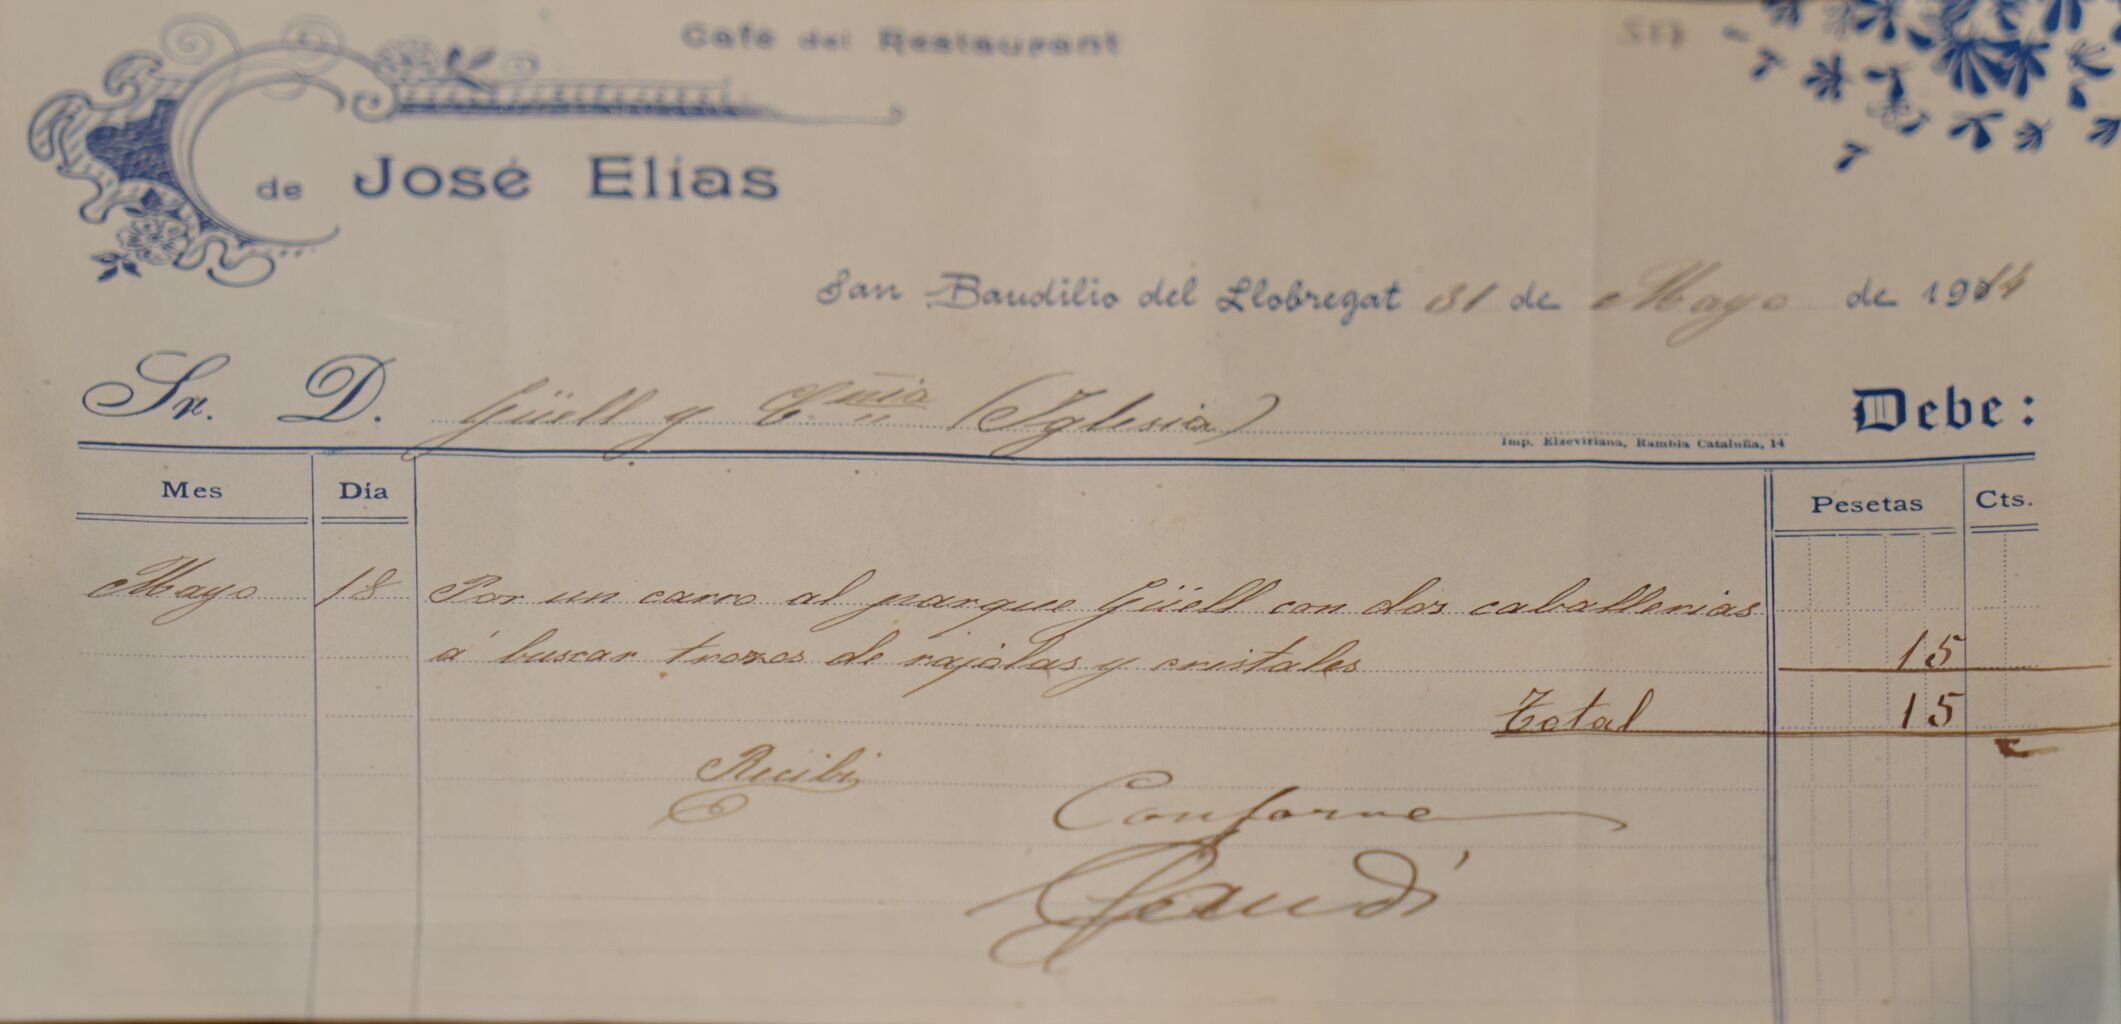 Café del Restaurant
517
de José Elias
San Baudilio del Llobregat 31 de Mayo de 1914
Sr. D. Güell y Cñia (Iglesia) Debe:
Imp. Elzeviriana, Rambla Cataluña, 14
Mes Día Pesetas Cts.
Mayo 18 Por un carro al parque Güell con dos caballerias
á buscar trozos de rajolas y cristales 15
Total 15
Recibi
Conforme
Gaudí